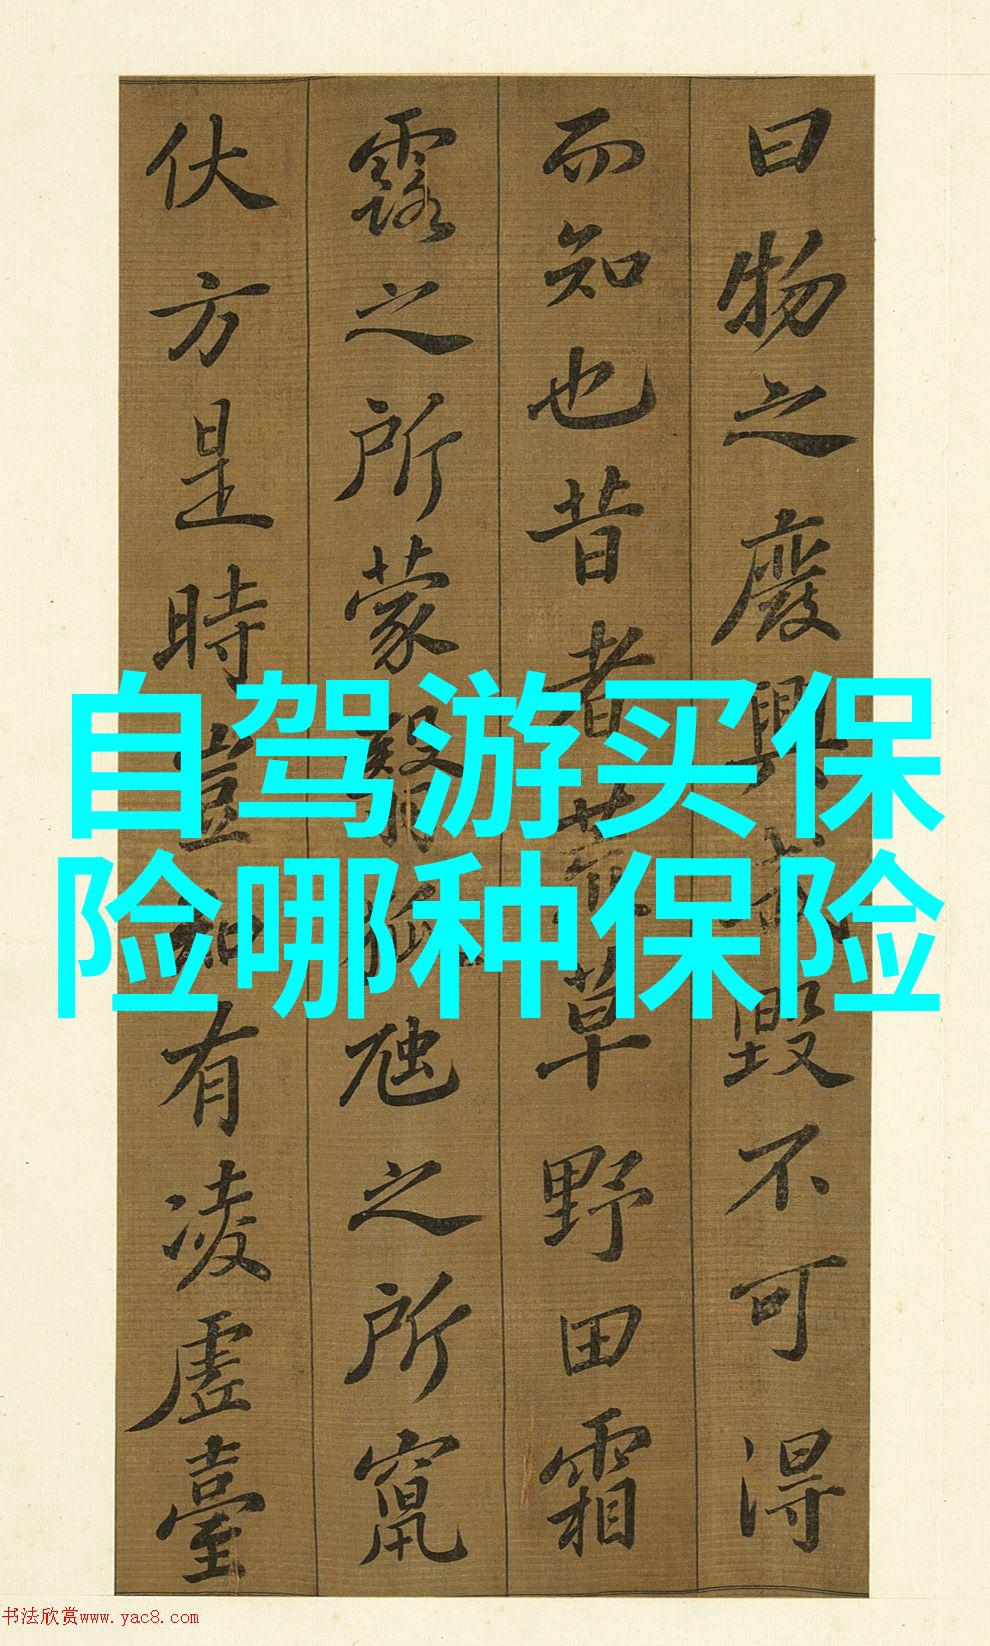 自驾游买保
险哪种保险
曰物之廢興成毀不可得
而知也昔者荒草野田霜
露之所蒙翳狐虺之所竄
伏方是時豈知有凌虛臺
书法欣赏www.yac8.com